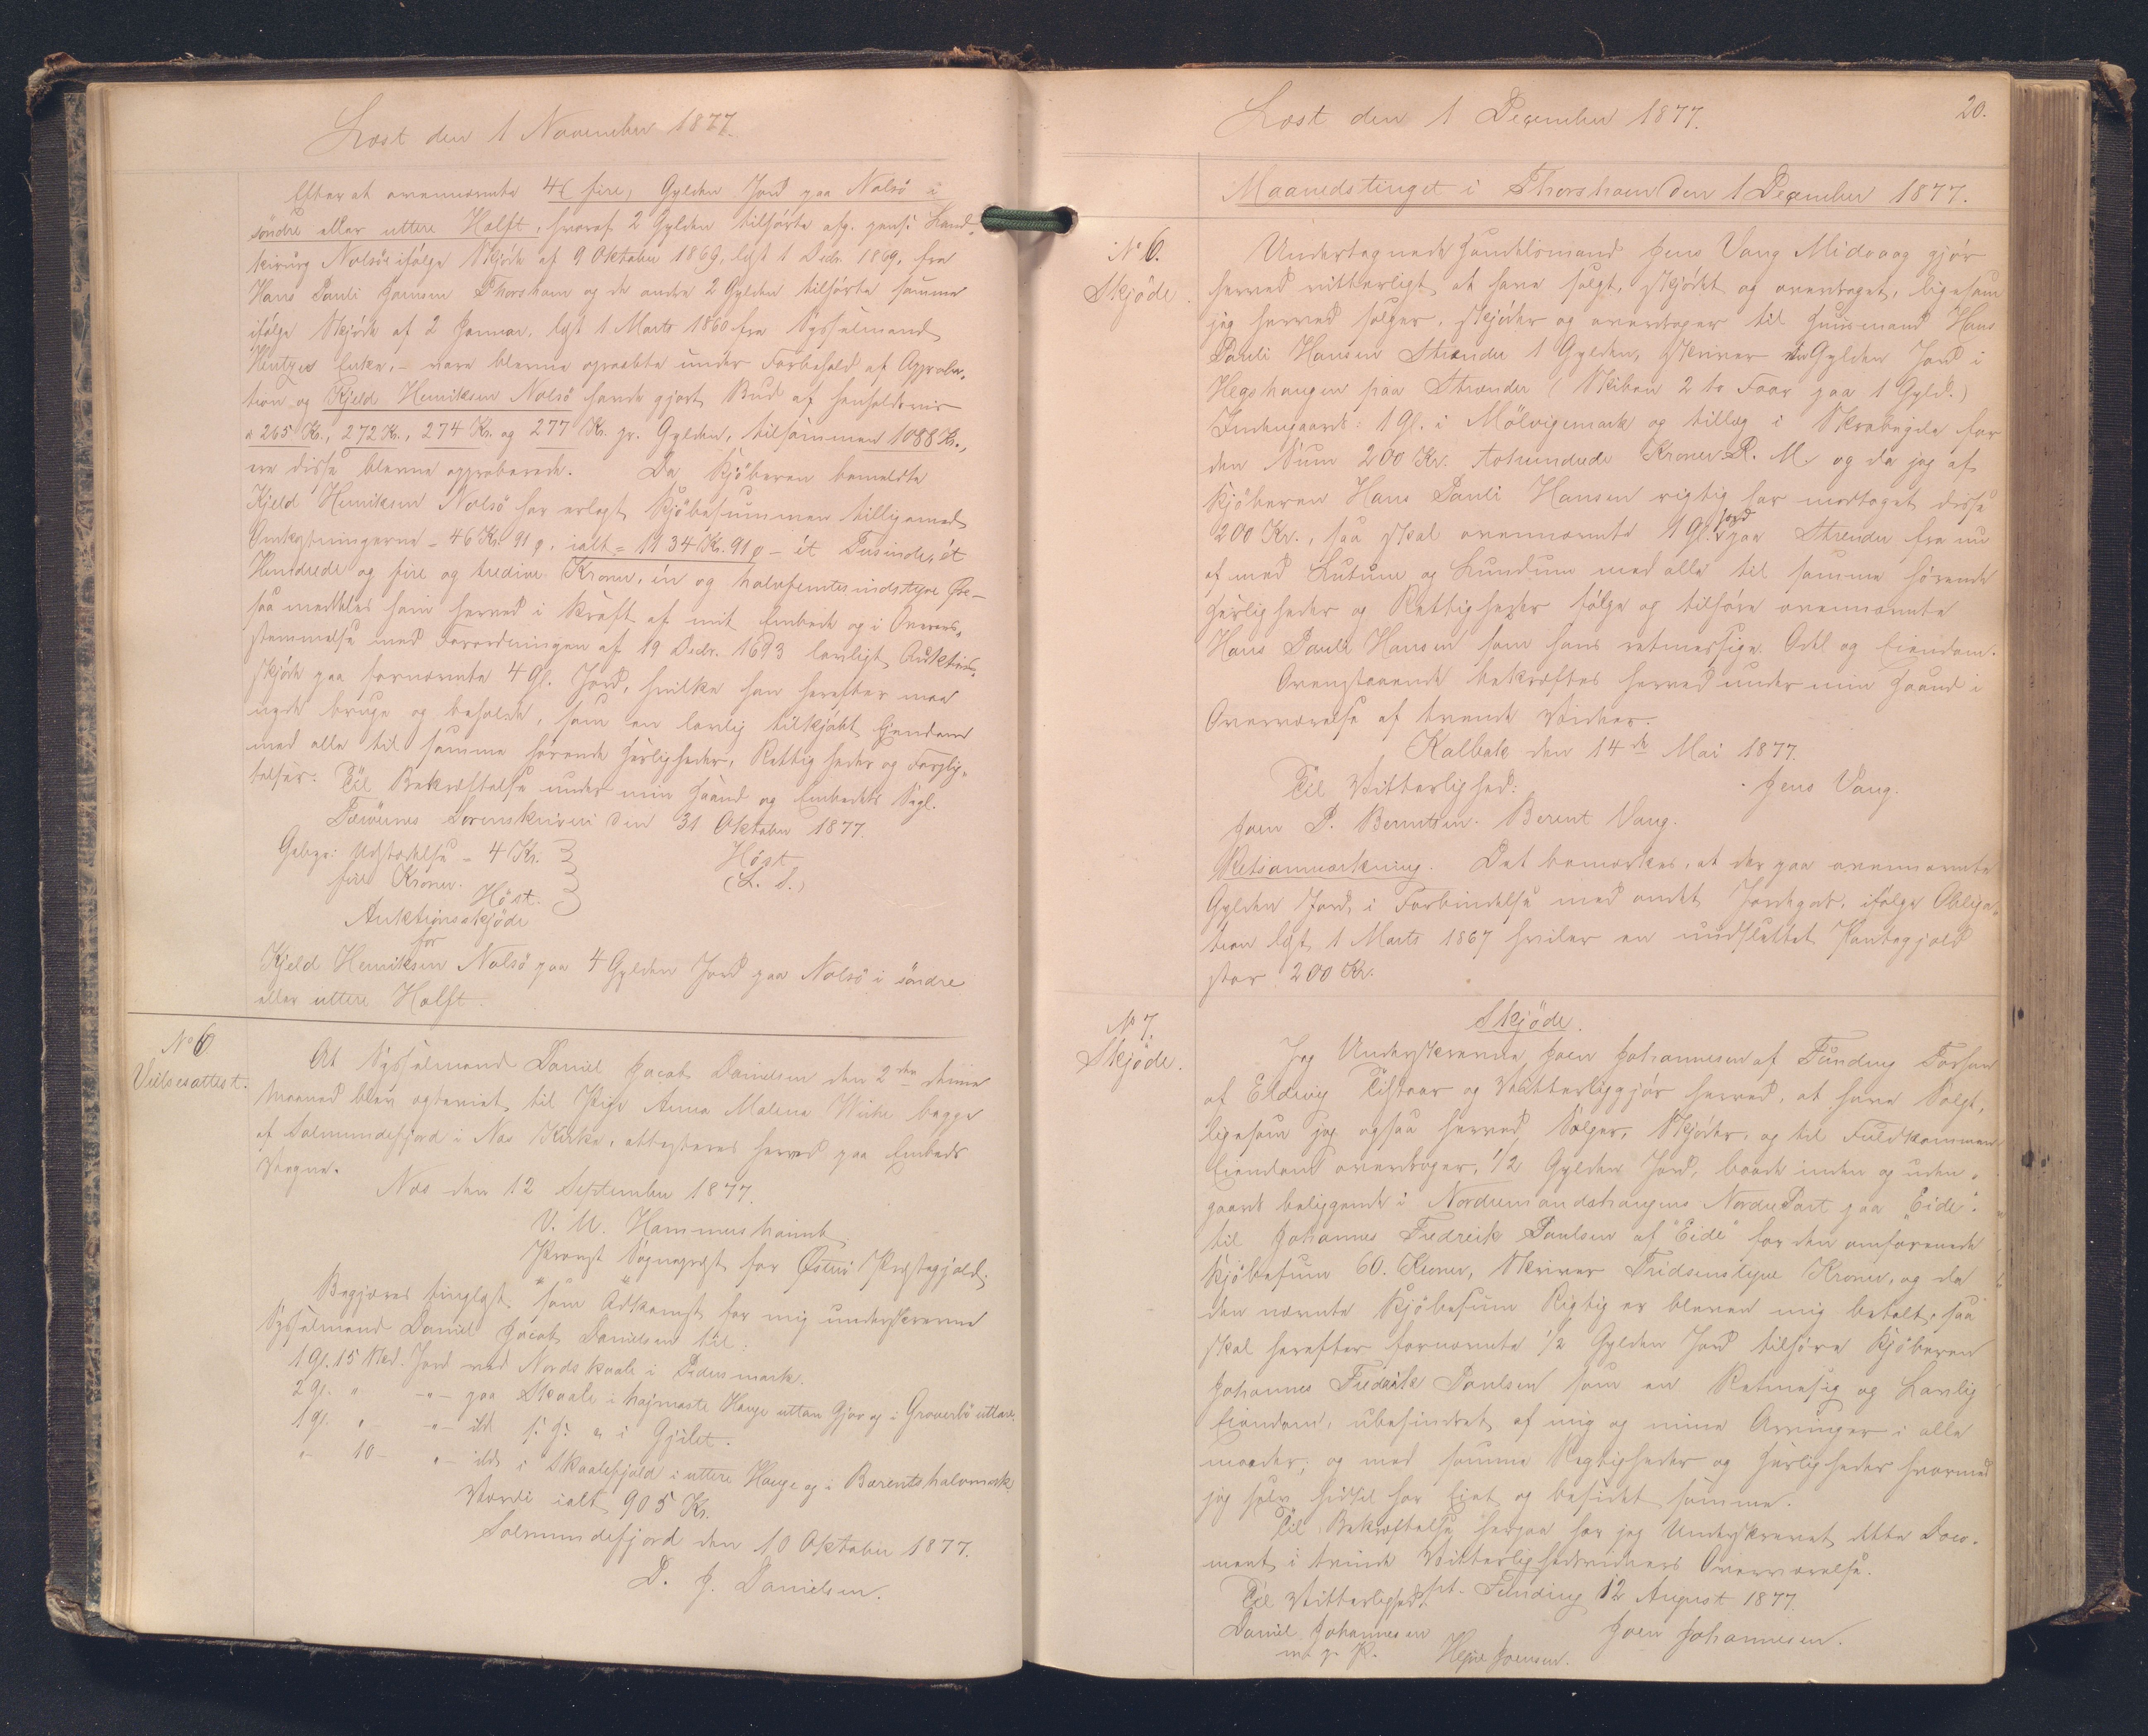 Læst den 1 November 1877.
Efterat ovennævnte 4 (fire) Gylden Jord paa Nolsø i
søndre eller uttere Halft, hvoraf 2 Gylden tilhørte afg. pens. Land-
kirurg Nolsöe ifølge Skjøde af 9 Oktober 1869, læst 1 Decbr. 1869, fra
Hans Pauli Jansen Thorshavn og de andre 2 Gylden tilhørte samme
ifølge Skjøde af 2 Januar, læst 1 Marts 1860 fra Sysselmand
Heutzes Enke, - vare blevne opraabte under Forbehold af Approba-
tion og Kjeld Henriksen Nolsö havde gjort Bud af henholdsvis
a 265 Kr., 272 Kr., 274 Kr. og 277 Kr. pr. Gylden, tilsammen 1088 Kr.,
ere disse blevne approberede. Da Kjöberen bemeldte
Kjeld Henriksen Nolsö har erlagt Kjöbesummen tilligemed
Omkostningerne - 46 Kr. 91 ø, ialt = 1134 Kr. 91 ø - ét Tusinde, ét
Hundrede og fire og tredive Kroner, én og halvfemtesindstyve Øre -
saa meddeles ham herved i Kraft af mit Embede og i Overens-
stemmelse med Forordningen af 19 Decbr. 1693 lovligt Auktions-
skjøde paa fornævnte 4 Gl. Jord, hvilke han herefter maa
nyde bruge og beholde, som en lovlig tilkjøbt Ejendom
med alle til samme hørende Herligheder, Rettigheder og Forplig-
telser. Til Bekræftelse under min Haand og Embedets Segl.
Færøernes Sorenskriveri den 31 Oktober 1877.
Gebyr: Udstedelse - 4 Kr.
fire Kroner.
Höst.
Höst
(L. S.)
Auktionsskjöde
for
Kjeld Henriksen Nolsö paa 4 Gylden Jord paa Nolsö i söndre
eller uttere Halft.
No 6
Vielsesattest.
At Sysselmand Daniel Jacob Danielsen den 2den denne
Maaned blev ægteviet til Pige Anna Malena Wiihe begge
af Salmundefjord i Næs Kirke, attesteres herved paa Embeds
Vegne.
Næs den 12 September 1877.
V. U. Hammershaimb
Provst Sognepræst for Österö Præstegjæld.
Begjæres tinglæst som Adkomst for mig underskrevne
Sysselmand Daniel Jacob Danielsen til:
1 Gl. 15 Skd. Jord ved Nordskaale i Pidersmark.
2 Gl. " -"- paa Skaale i højmaste Hauge uttan Gjov og i Groverbö uttan.
1 Gl. " "- ibd i Gjilet.
" 10 - "- ibd i Skaalefjold i uttere Hauge og i Bærentshalvmark
Værdi ialt 905 Kr.
Salmundefjord den 10 Oktober 1877.
D. J. Danielsen.
Læst den 1 December 1877.
20.
Maanedstinget i Thorshavn den 1 December 1877.
No 6.
Skjöde.
Undertegnede Handelsmand Jens Vang Midvaag gjör
herved vitterligt at have solgt, skjödet og overdraget, ligesom
jeg herved sælger, skjöder og overdrager til Huusmand Hans
Pauli Hansen Strænder 1 Gylden, skriver een Gylden Jord i
Hegshaugen paa Strænder (Skiben 2 to Faar paa 1 Gyld.)
Indengaards: 1 Gl. i Mölvigsmark og tillæg i Skrabagile for
den Sum 200 Kr. tohundrede Kroner R. M. og da jeg af
Kjöberen Hans Pauli Hansen rigtig har modtaget disse
200 Kr., saa skal ovennævnte 1 Gl. Jord paa Strender fra nu
af med Lutum og Lundum med alle til samme hörende
Herligheder og Rettigheder fölge og tilhöre ovennævnte
Hans Pauli Hansen som hans retmæssige Odel og Eiendom.
Ovenstaaende bekræftes herved under min Haand i
Overværelse af tvende Vidner.
Kalbak den 14de Mai 1877.
Til Vitterlighed:
Jens Vang.
Joen P. Berntsen. Berent Vang.
Retsanmærkning. Det bemærkes, at der paa ovennævnte
Gylden Jord, i Forbindelse med andet Jordegods, ifølge Obliga-
tion læst 1 Marts 1867 hviler en uudslettet Pantegjæld
stor 200 Kr.
No 7.
Skjöde.
Skjöde.
Jeg Underskrevne Joen Johannesen af Funding
af Eldevig Tilstaar og Vitterliggjör herved, at have Solgt,
ligesom jeg ogsaa herved Sælger, Skjöder, og til Fuldkommen
Eiendom overdrager, 1/2 Gylden Jord, baade inden og uden-
gaards beliggende i Nordremandshaugens NordrePart paa "Eide".
til Johannes Fredreik Poulsen af "Eide" for den omforenede
Kjöbesum 60. Kroner, Skriver Tridsenstyve Kroner, og da
den nævnte Kjöbesum Rigtig er bleven mig betalt, saa
skal herefter fornævnte 1/2 Gylden Jord tilhöre Kjöberen
Johannes Fredrik Poulsen som en Retmæsig og Lovlig
Eiendom, ubehindret af mig og mine Arvinger i alle
maader; og med samme Regtigheder og Herligheder hvormed
jeg selv hidtil har Eiet og besiddet samme.
Til Bekræftelse herpaa har jeg Underskrevet dette Docu-
ment i tvende Vitterlighedsvidners Overværelse.
pt. Funding 12 August 1877.
Til Vitterlighed:
Daniel Johannesen
m. p. P.
Joen Johannesen.
Joensen.